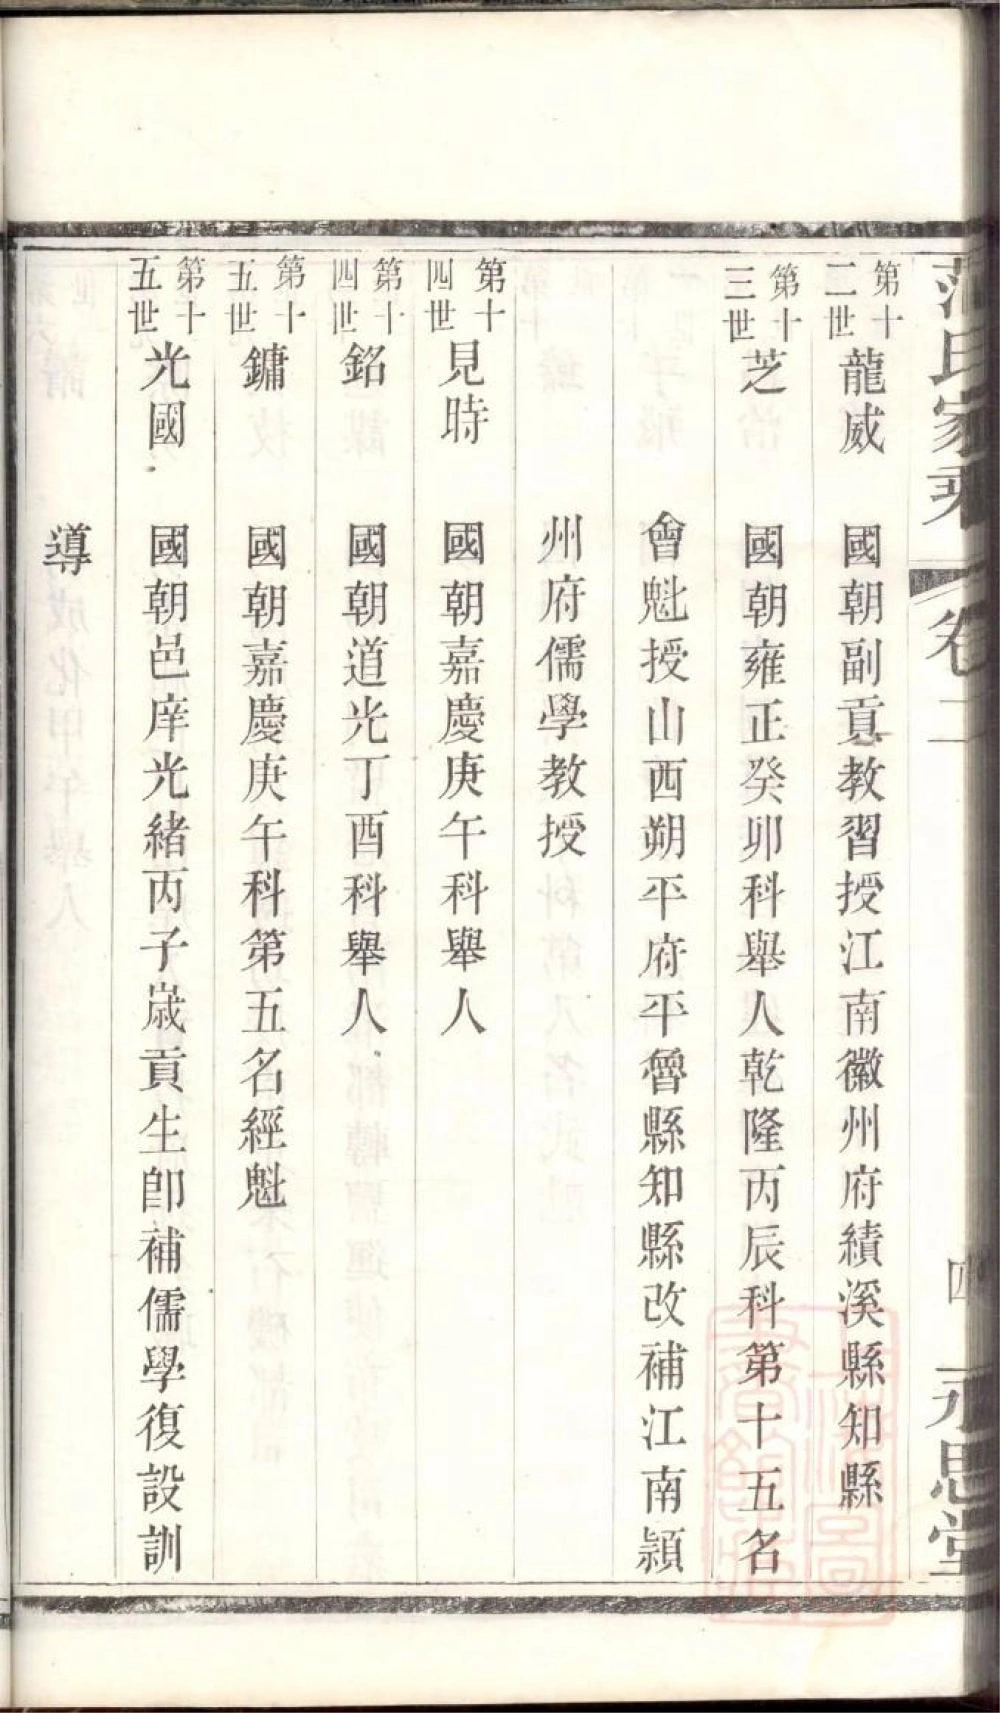 氏家乘
卷二
四
永思堂
第十二世 龍威 國朝副貢教習授江南徽州府績溪縣知縣
第十三世 芝 國朝雍正癸卯科舉人乾隆丙辰科第十五名
會魁授山西朔平府平魯縣知縣改補江南潁
州府儒學教授
第十四世 見時 國朝嘉慶庚午科舉人
第十四世 銘 國朝道光丁酉科舉人
第十五世 鏞 國朝嘉慶庚午科第五名經魁
第十五世 光國 國朝邑庠光緒丙子歲貢生卽補儒學復設訓
導